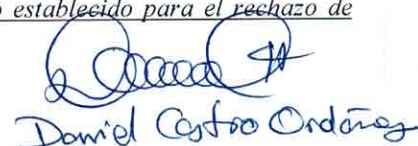 o establecido para el rechazo de
Daniel Castro Ordóñez